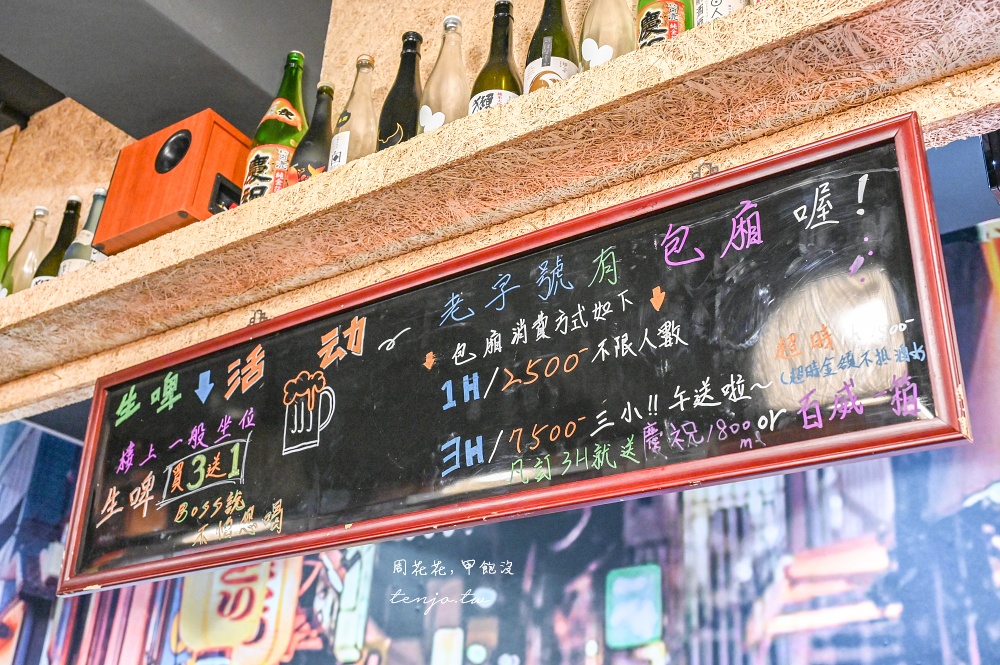 生啤⬇活动~
樓上一般坐位
生啤 買3送1
Boss說
老字號有包廂喔!
包廂消費方式如下
1H/2500- 不限人數
3H/7500- 三小!! 午送啦~
凡訂3H就送慶祝1800ml or 百威一箱
超時
(超時金額不抵酒水)
慶祝
獺
周花花,甲飽沒
tenjo.tw